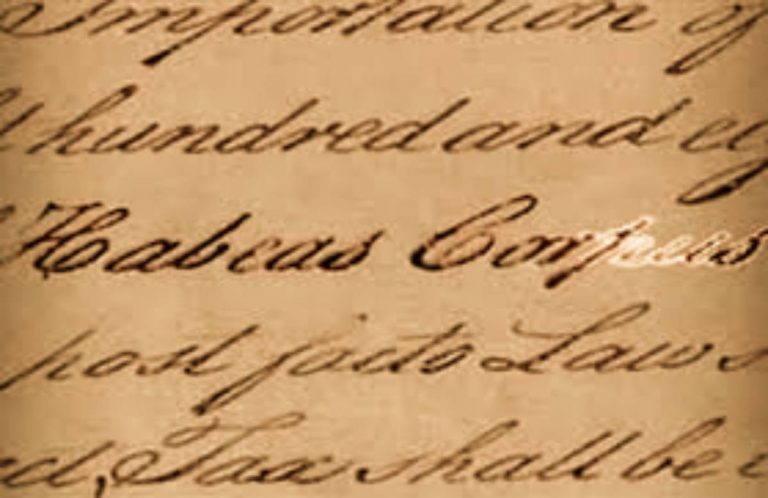 Importation of
hundred and
Habeas Corpus
post facto Laws
Tax shall be